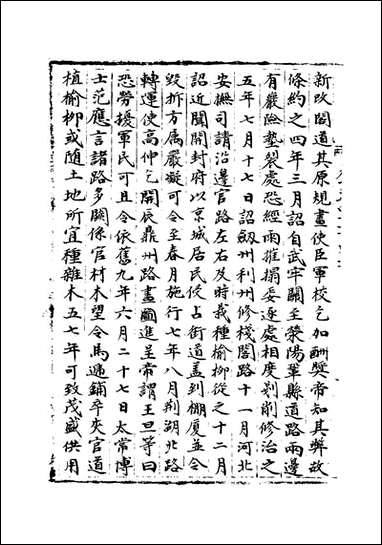 新改閣道其原規畫使臣軍校乞加酬奬帝知其弊故
條約之四年三月詔自武牢關至滎陽鞏縣道路兩邊
有巖險墊裂處恐經雨摧塌委逐處相度剗削修治之
五年七月十七日詔劔州利州修棧閣路十一月河北
安撫司請沿邊官路左右及時栽種榆柳從之十二月
詔近聞開封府以京城居民侵占街道蓋到棚廈並令
毀折方属嚴凝可令至春月施行七年八月荆湖北路
轉運使高伸乞開辰鼎州路畫圖進呈帝謂王旦等曰
恐勞擾軍民可且令依舊九年六月二十七日太常博
士范應言諸路多闕係官材木望令馬遞鋪卒夾官道
植榆柳或随土地所宜種雜木五七年可致茂盛供用